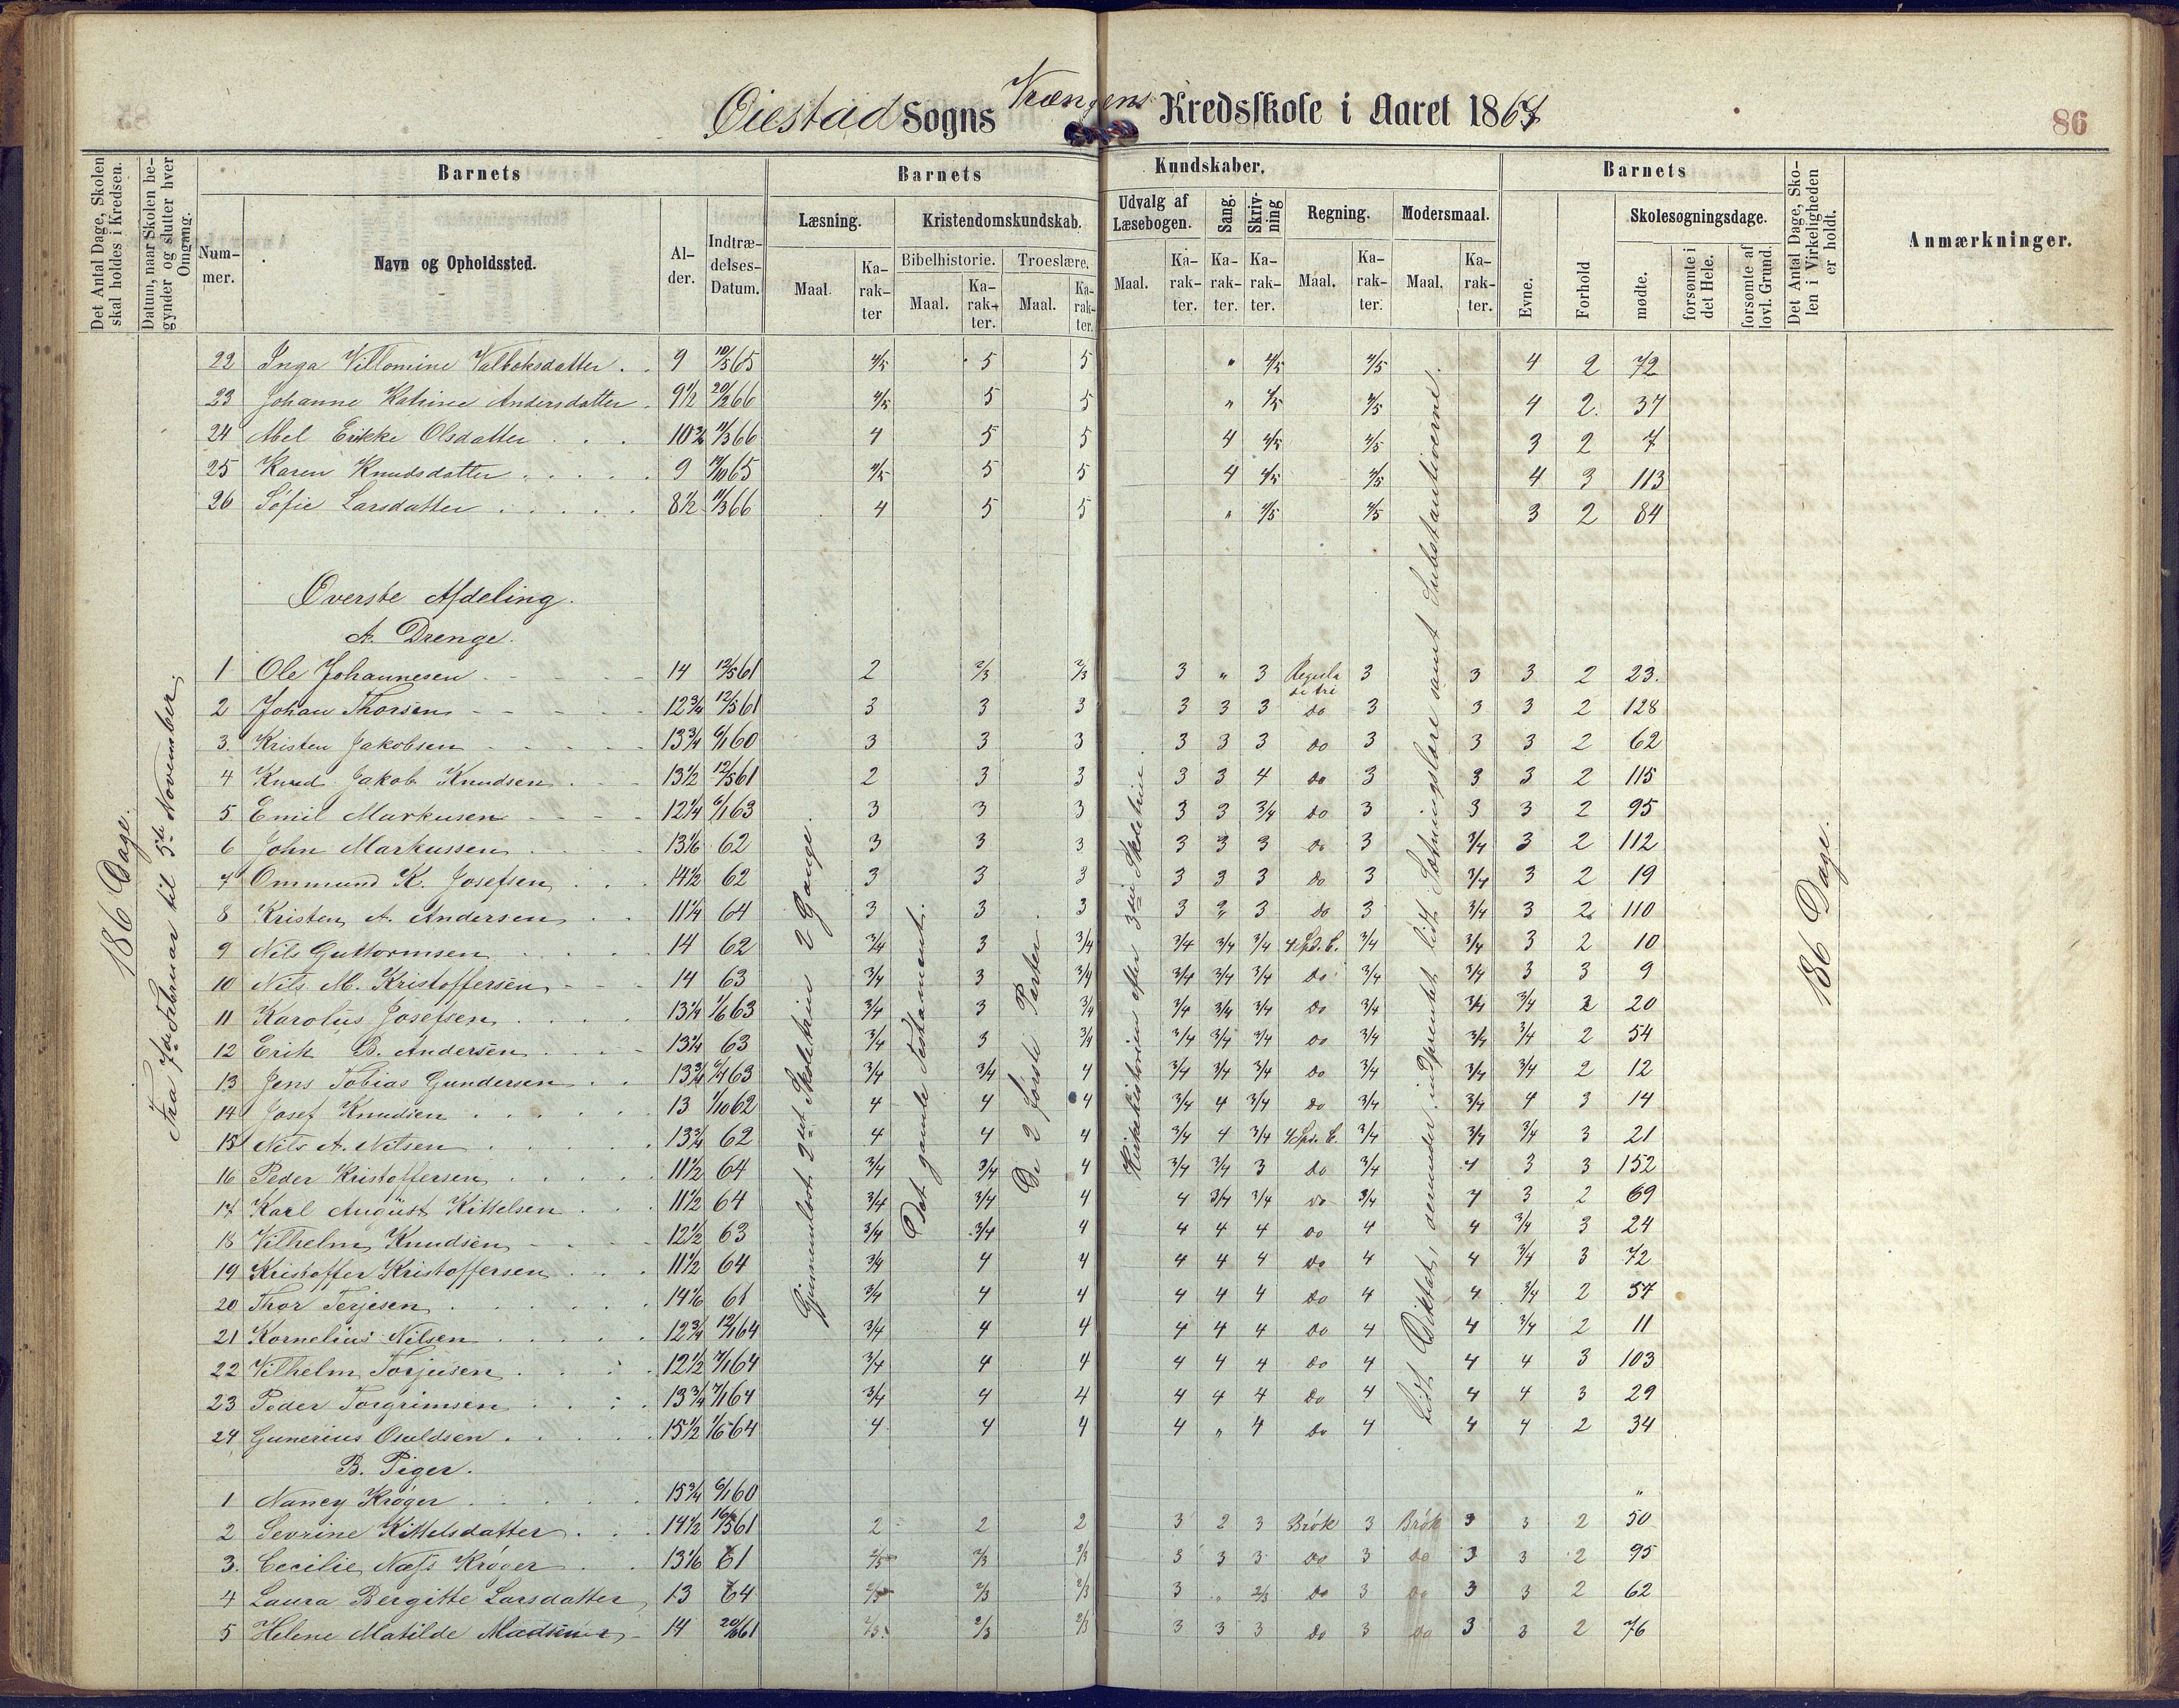 Øiestad Sogns Vrængens Kredsskole i Aaret 1867
86
Det Antal Dage, Skolen skal holdes i Kredsen.
Datum, naar Skolen begynder og slutter hver Omgang.
Barnets
Nummer.
Navn og Opholdssted.
Alder.
Indtrædelses-Datum.
Barnets Kundskaber.
Læsning.
Maal.
Karakter
Kristendomskundskab.
Bibelhistorie.
Maal.
Karakter.
Troeslære.
Maal.
Karakter.
Udvalg af Læsebogen.
Maal.
Karakter.
Sang.
Karakter.
Skrivning
Karakter.
Regning.
Maal.
Karakter.
Modersmaal.
Maal.
Karakter.
Barnets
Evne.
Forhold
Skolesøgningsdage.
mødte.
forsømte i det Hele.
forsømte af lovl. Grund.
Det Antal Dage, Skolen i Virkeligheden er holdt.
Anmærkninger.
186 Dage.
Fra 7de Februar til 5te November.
22 Inga Villomine Valboksdatter. 9 10/5 65 4/5 5 5 " 4/5 4/5 4 2 72
23 Johanne Katrine Andersdatter. 9 1/2 20/2 66 4/5 5 5 " 4/5 4/5 4 2 37
24 Abel Erikke Olsdatter 5 5 4 4/5 4/5 3 2 7
25 Karen Knudsdatter 9 65 4/5 5 5 4 4/5 4/5 4 3 113
26 Sofie Larsdatter 8 1/2 66 4 5 5 " 4/5 4/5 3 2 84
Øverste Afdeling.
A. Drenge.
1 Ole Johannesen 14 12/5 61 2 2/3 2/3 3 " 3 Regula de tri 3 3 3 2 23.
2 Johan Thorsen 12 3/4 12/5 61 3 3 3 3 3 3 do 3 3 3 2 128
3. Kristen Jakobsen 13 3/4 6/1 60 3 3 3 3 3 3 do 3 3 3 2 62
4 Knud Jakob Knudsen 13 1/2 12/5 61 2 3 3 3 3 4 do 3 3 3 2 115
5 Emil Markusen 12 1/4 6/1 63 3 3 3 3 3 3/4 do 3 3 3 2 95
6 John Markussen 13 1/6 62 3 3 3 3 3 3 do 3 3/4 3 2 112
7 Ommund K. Josefsen 14 1/2 62 3 3 3 3 3 3 do 3 3/4 3 2 19
8 Kristen A. Andersen 11 1/4 64 3 3 3 3 3 do 3 3/4 3 2 110
9 Nils Guttormsen 14 62 3/4 3 3/4 3/4 3/4 3/4 4 Spd. C. 3/4 3/4 3 2 10
10 Nils M. Kristoffersen 14 63 3/4 3 3/4 3/4 3/4 3/4 do 3/4 3/4 3 3 9
11 Karolus Josefsen 13 1/4 1/6 63 3/4 3 3/4 3/4 3/4 3/4 do 3/4 3/4 3/4 2 20
12 Erik B. Andersen 13 1/4 63 3/4 3 3/4 3/4 3/4 3/4 do 3/4 3/4 3/4 2 54
13 Jens Tobias Gundersen 13 3/4 63 3/4 3/4 4 3/4 3/4 3/4 do 3/4 3/4 3/4 2 12
14 Josef Knudsen 13 1/10 62 4 4 4 3/4 4 3/4 do 3/4 3/4 4 3 14
15 Nils A. Nilsen 13 3/4 62 4 4 4 3/4 4 3/4 4 Spd. C. 3/4 3/4 3/4 3 21
16 Peder Kristoffersen 11 1/2 64 3/4 3/4 4 3/4 3/4 3 do 3/4 4 3 3 152
17 Karl August Kittelsen 11 1/2 64 3/4 3/4 4 4 3/4 3/4 do 3/4 4 3 2 69
18 Vilhelm Knudsen 12 1/2 63 3/4 3/4 4 4 4 4 do 4 4 3/4 3 24
19 Kristoffer Kristoffersen 11 1/2 64 3/4 4 4 4 4 4 do 4 4 3/4 3 72
20 Thor Terjesen 14 1/6 61 3/4 4 4 4 4 4 do 4 4 3/4 2 57
21 Kornelius Nilsen 12 3/4 12/1 64 3/4 4 4 4 4 4 do 4 4 3/4 2 11
22 Vilhelm Torjusen 12 1/2 7/1 64 3/4 4 4 4 4 4 do 4 4 4 3 103
23 Peder Torgrimsen 13 3/4 7/1 64 3/4 4 4 4 4 4 do 4 4 4 3 29
24 Gunerius Osuldsen 15 1/2 64 4 4 4 4 " 4 do 4 4 4 2 34
B. Piger.
1 Nancy Krøger 15 3/4 6/1 60 "
2 Sevrine Kittelsdatter 14 1/2 61 2 2 2 3 2 3 Brøk 3 Brøk 3 3 2 50
3. Cecilie Næss Krøger 13 1/6 61 2/3 2/3 2/3 3 3 3 do 3 do 3 3 2 95
4 Laura Bergitte Larsdatter 13 64 2/3 2/3 2/3 3 " 2/3 do 3 do 3 3 2 62
5 Helene Matilde Madsen 14 61 2/3 2/3 2/3 3 3 3 do 3 do 3 3 2 76
Gjennemløst 2det Skoletrin 2 Gange.
Det gamle Testamente.
De 2 første Parter
Kirkehistorien efter 3die Skoletrin.
Lidt Diktat, derunder indprentet lidt Sætningslære samt Substantiverne.
186 Dage.